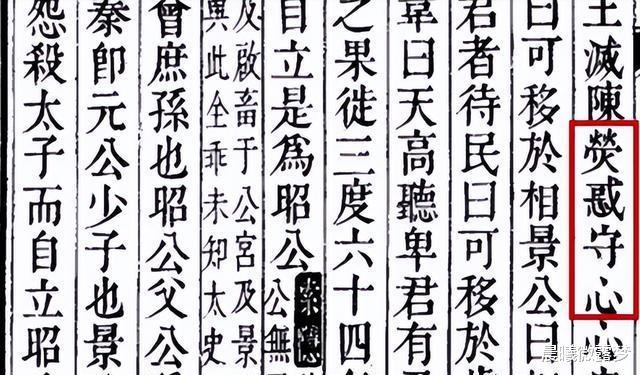 王滅陳熒惑守心心
曰可移於相景公曰
君者待民曰可移於
韋曰天高聽卑君有
之果徙三度六十四
自立是為昭公
索隱
公無
及啟畜于公宮及景
與此全乖未知太史
曾庶孫也昭公父公
秦即元公少子也景
怨殺太子而自立昭
晨曦微露梦